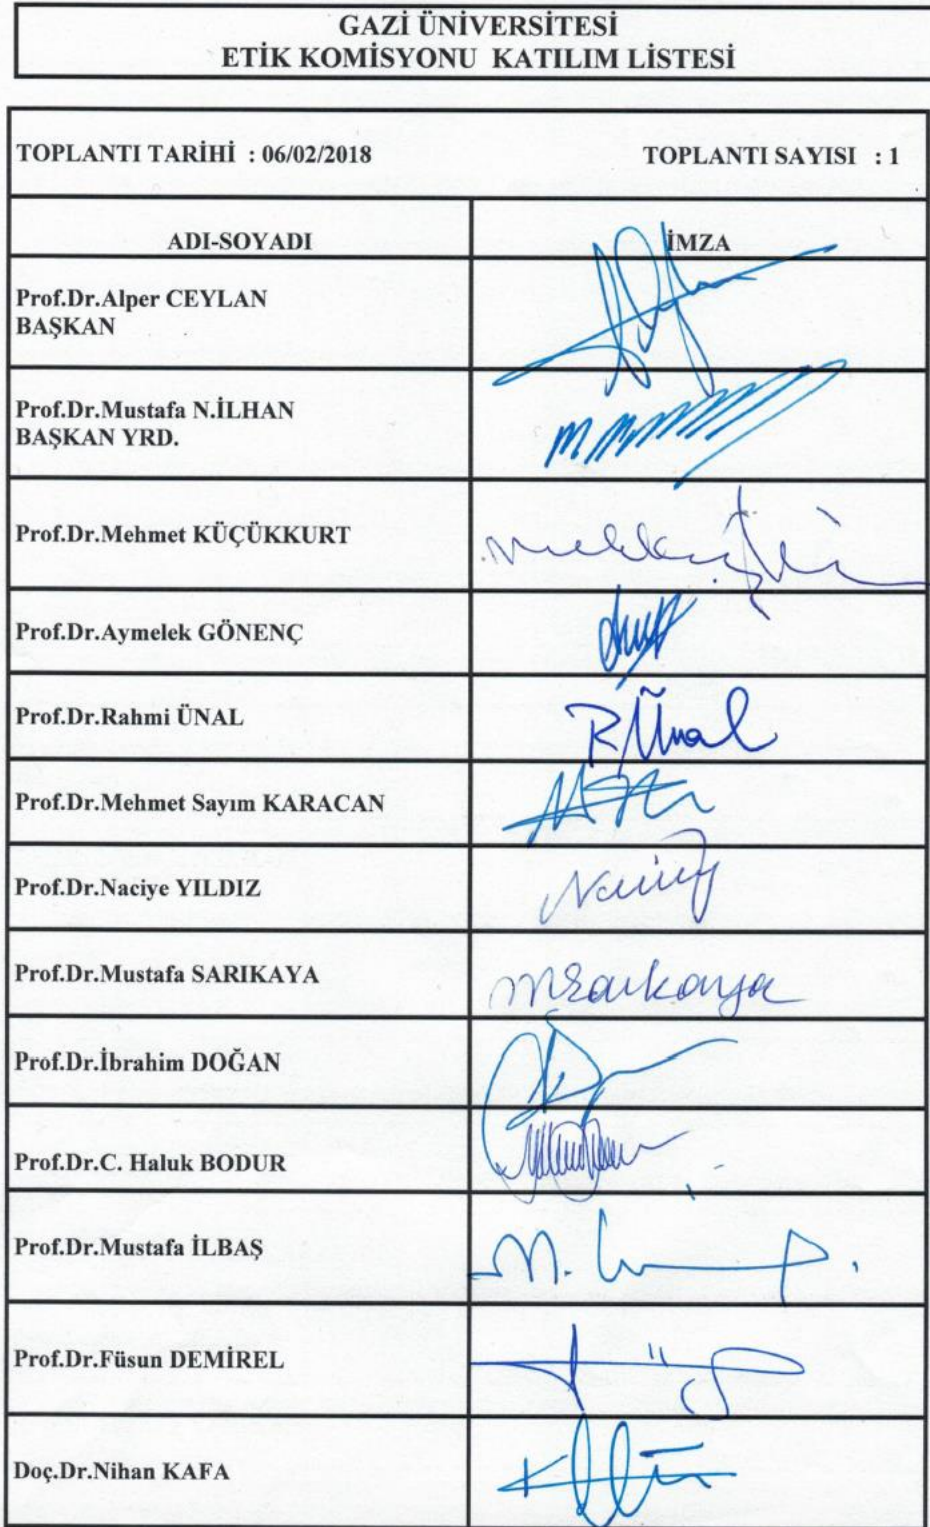 GAZİ ÜNİVERSİTESİ
ETİK KOMİSYONU KATILIM LİSTESİ
TOPLANTI TARİHİ : 06/02/2018 TOPLANTI SAYISI : 1
ADI-SOYADI İMZA
Prof.Dr.Alper CEYLAN
BAŞKAN
Prof.Dr.Mustafa N.İLHAN
BAŞKAN YRD.
Prof.Dr.Mehmet KÜÇÜKKURT
Prof.Dr.Aymelek GÖNENÇ
Prof.Dr.Rahmi ÜNAL R.Ünal
Prof.Dr.Mehmet Sayım KARACAN
Prof.Dr.Naciye YILDIZ
Prof.Dr.Mustafa SARIKAYA MSarıkaya
Prof.Dr.İbrahim DOĞAN
Prof.Dr.C. Haluk BODUR
Prof.Dr.Mustafa İLBAŞ
Prof.Dr.Füsun DEMİREL
Doç.Dr.Nihan KAFA